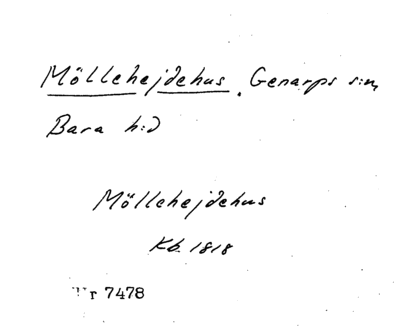 Möllehejdehus. Genarps s:n,
Bara h:d
Möllehejdehus
Kb. 1818
Nr 7478